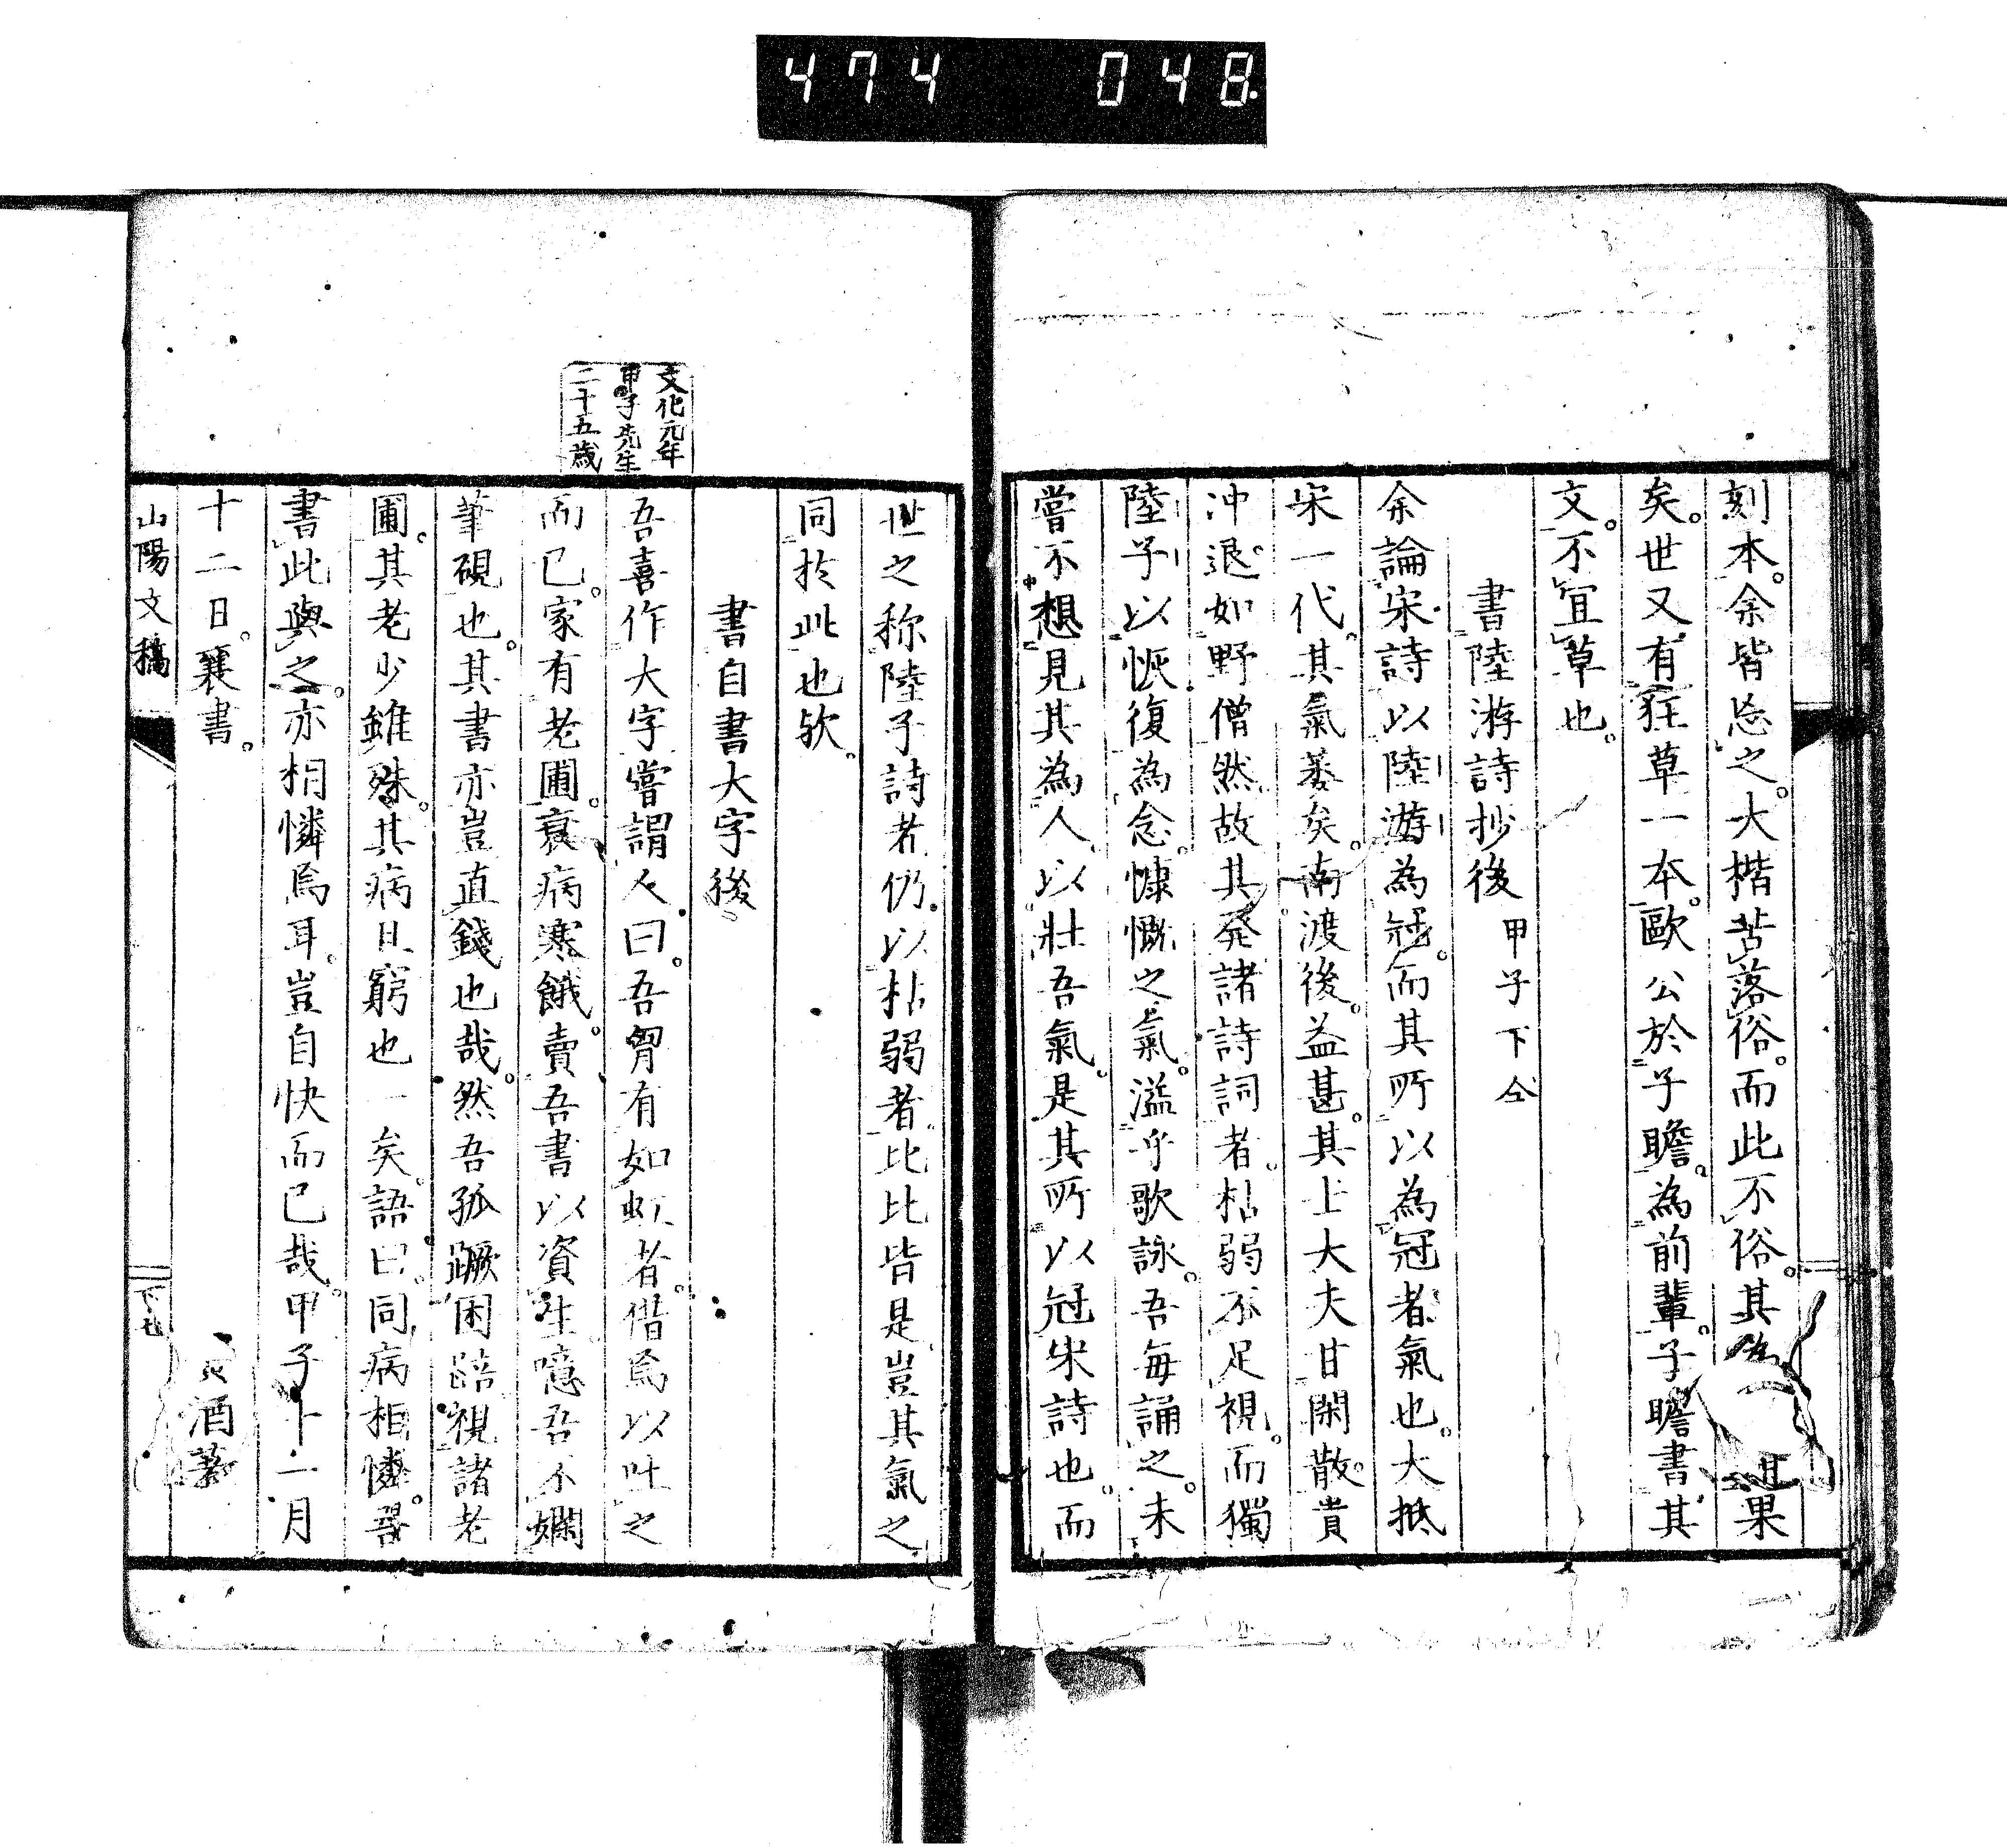 474 048
刻本。余皆忘之。大楷苦落俗。而此不俗。其
果
矣。世又有狂草一本。歐公於子瞻。為前輩。子瞻書其
文。不宜草也。
書陸游詩抄後 甲子下仝
余論宋詩以陸游為冠。而其所以為冠者氣也。大抵
宋一代。其氣萎矣。南渡後。益甚。其士大夫甘閑散。貴
冲退。如野僧然。故其発諸詩詞者。枯弱不足視。而獨
陸子以恢復為念。慷慨之氣。溢乎歌詠。吾每誦之。未
嘗不想見其為人。以壯吾氣。是其所以冠宋詩也。而
文化元年
甲子先生
二十五歳
世之称陸子詩者。仍以枯弱者。比比皆是。豈其氣之
同於此也欤。
書自書大字後。
吾喜作大字。嘗謂人曰。吾胷有如虹者。借焉以吐之
而已。家有老圃。衰病寒餓。賣吾書以資生。噫吾不嫻
筆硯也。其書亦豈直錢也哉。然吾孤蹶困踣。視諸老
圃。其老少雖殊。其病且窮也一矣。語曰。同病相憐。吾
書此與之。亦相憐焉耳。豈自快而已哉。甲子十二月
十二日。襄書。
酒
山陽文稿
下七